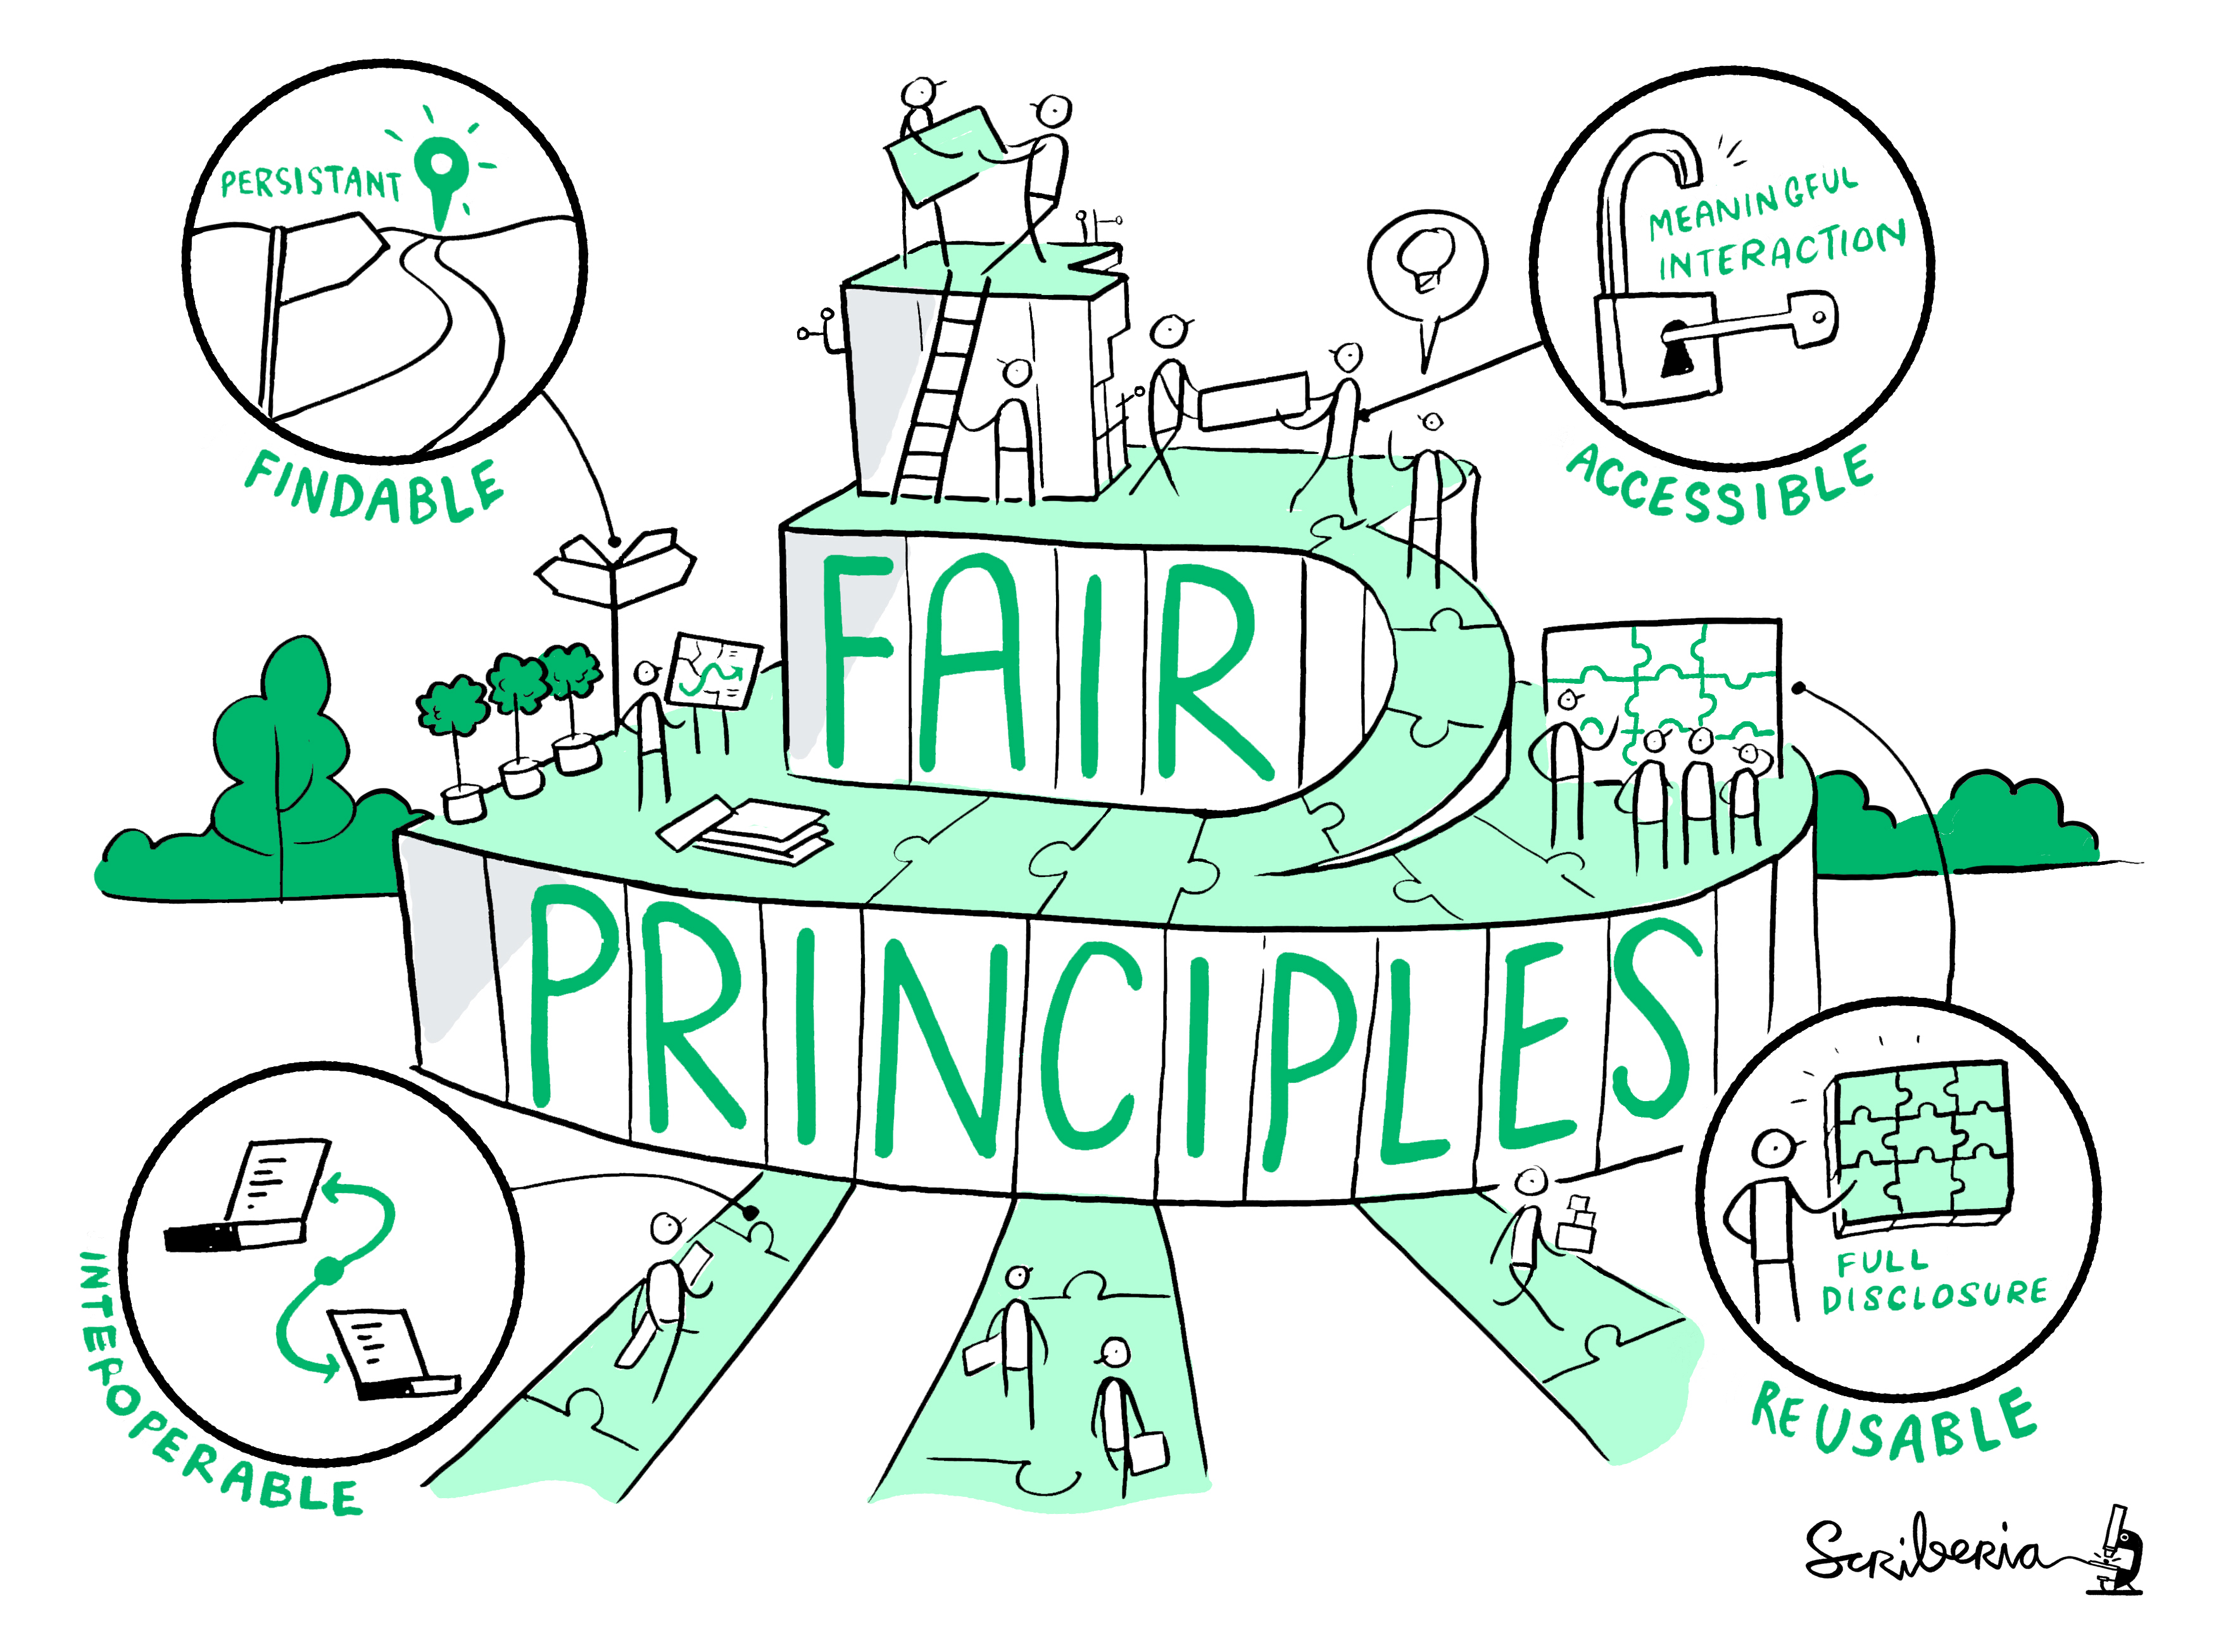 PERSISTANT
FINDABLE
MEANINGFUL
INTERACTION
ACCESSIBLE
FAIR
PRINCIPLES
INTEROPERABLE
FULL
DISCLOSURE
REUSABLE
Scriberia